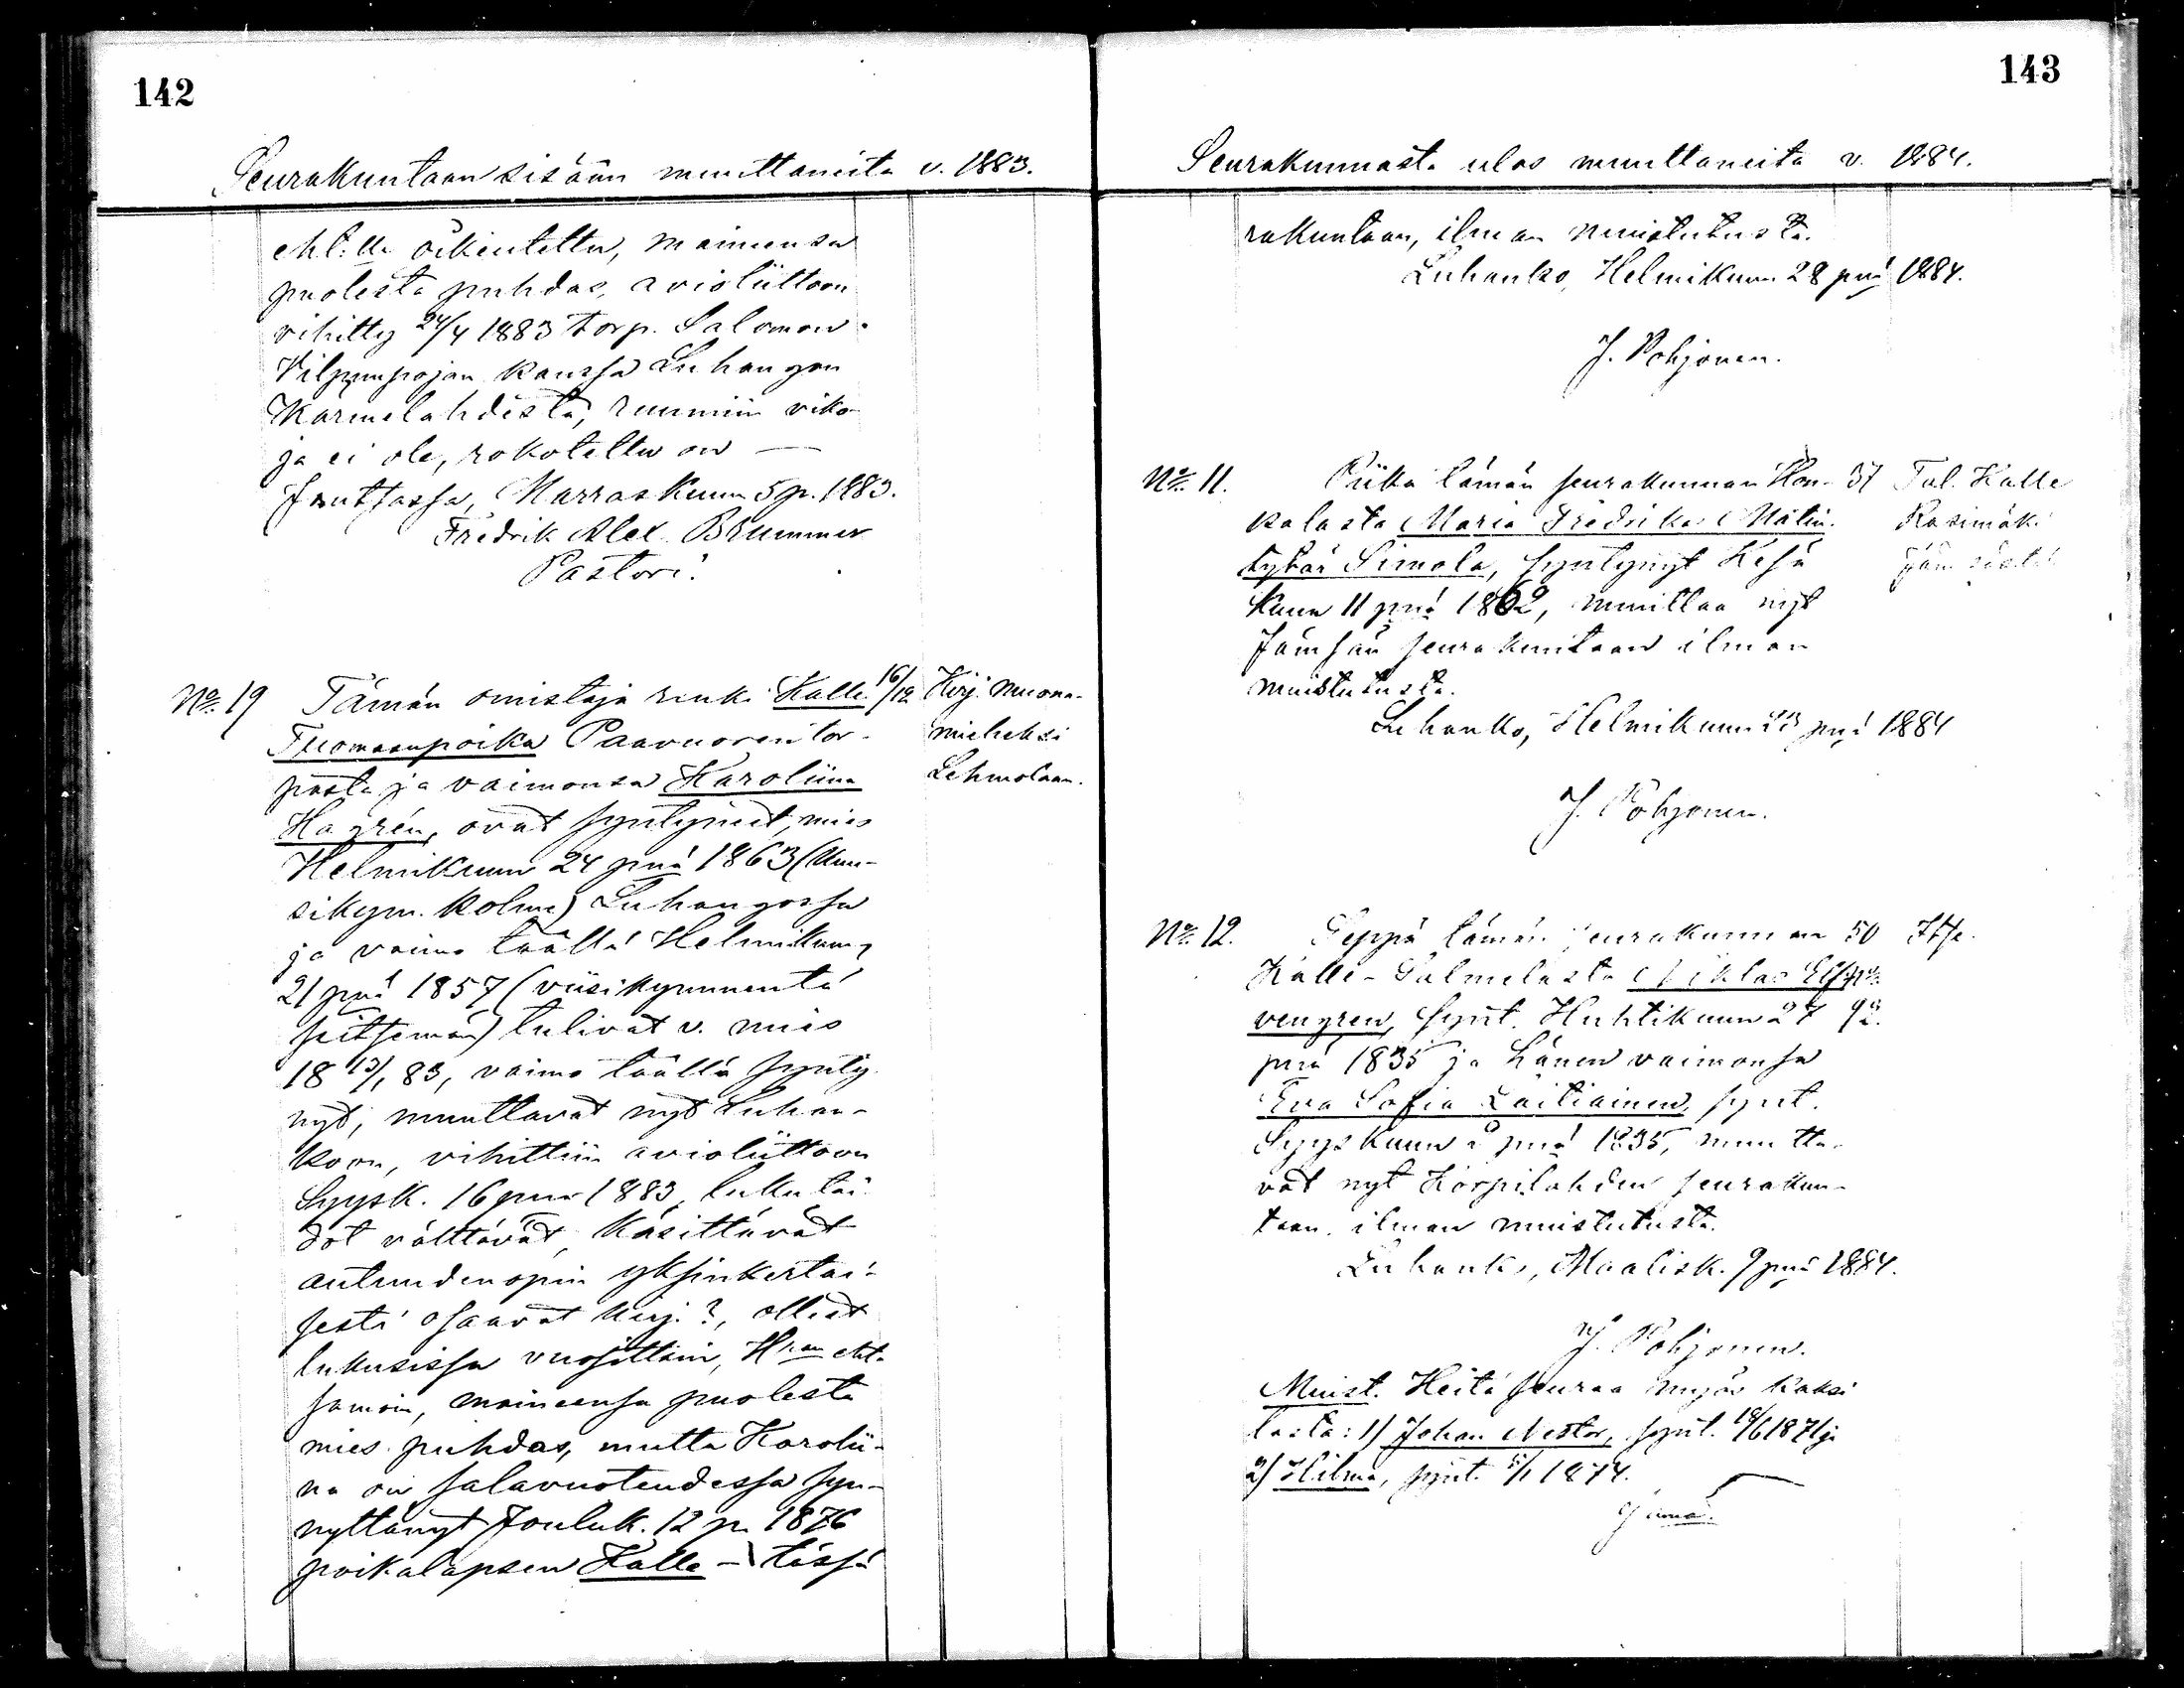 142
Seurakuntaan sisään muuttaneita v. 1883.
eht:lle oikeutettu, maineensa
puolesta puhdas, avioliittoon
vihitty 24/4 1883 torp. Salomon
Vilpunpojan kanssa Luhangon
Karmelahdesta, ruumiin viko-
ja ei ole, rokotettu on —
Joutsassa, Marraskuun 5 p. 1883.
Fredrik Alex. Brummer
Pastori.
No. 19 Tämän omistaja renki Kalle 16/12 Kirj. muona-
Tuomaanpoika Paavuoren tor- mieheksi
pasta ja vaimonsa Karoliina Lehmolaan.
Hagrén, ovat syntyneet, mies
Helmikuun 24 pnä 1863 (kuu-
sikym. kolme) Luhangossa
ja vaimo täällä Helmikuun
21 pnä 1857 (viisikymmentä
seitsemän) tulivat v. mies
18 13/1 83, vaimo täällä synty-
nyt, muuttavat nyt Luhan-
koon, vihittiin avioliittoon
Syysk. 16 pnä 1883, lukutai-
dot välttävät, käsittävät
autuudenopin yksinkertai-
sesti osaavat kirj.?, olleet
lukusissa vuosittain, H:ran eht.
samoin, maineensa puolesta
mies puhdas, mutta Karolii-
na on salavuoteudessa syn-
nyttänyt Jouluk. 12 p. 1876
poikalapsen Kalle — tässä
143
Seurakunnasta ulos muuttaneita v. 1884.
rakuntaan, ilman muistutusta.
Luhanko, Helmikuun 28 pnä 1884.
J. Pohjonen.
No. 11. Piika tämän seurakunnan Hon- 37 Tal. Kalle
kalasta Maria Fredrika Matin- Rasimäki
tytär Simola, syntynyt Kesä Jämsästä
kuun 11 pnä 1862, muuttaa nyt
Jämsän seurakuntaan ilman
muistutusta.
Luhanko, Helmikuun 23 pnä 1884
J. Pohjonen.
No. 12. Seppä tämän seurakunnan 50 Itse.
Kalle-Salmelasta Niklas
vengren, synt. Huhtikuun 27 92.
pnä 1835 ja hänen vaimonsa
Eva Sofia Laitiainen, synt.
Syyskuun pnä 1835, muutta-
vat nyt Korpilahden seurakun-
taan, ilman muistutusta.
Luhanko, Maalisk. 9 pnä 1884.
J. Pohjonen.
Muist. Heitä seuraa myös kaksi
lasta: 1) Johan Nestor, synt. 18/6 1871 ja
2) Hilma, synt. 5/1 1874.
J ama.